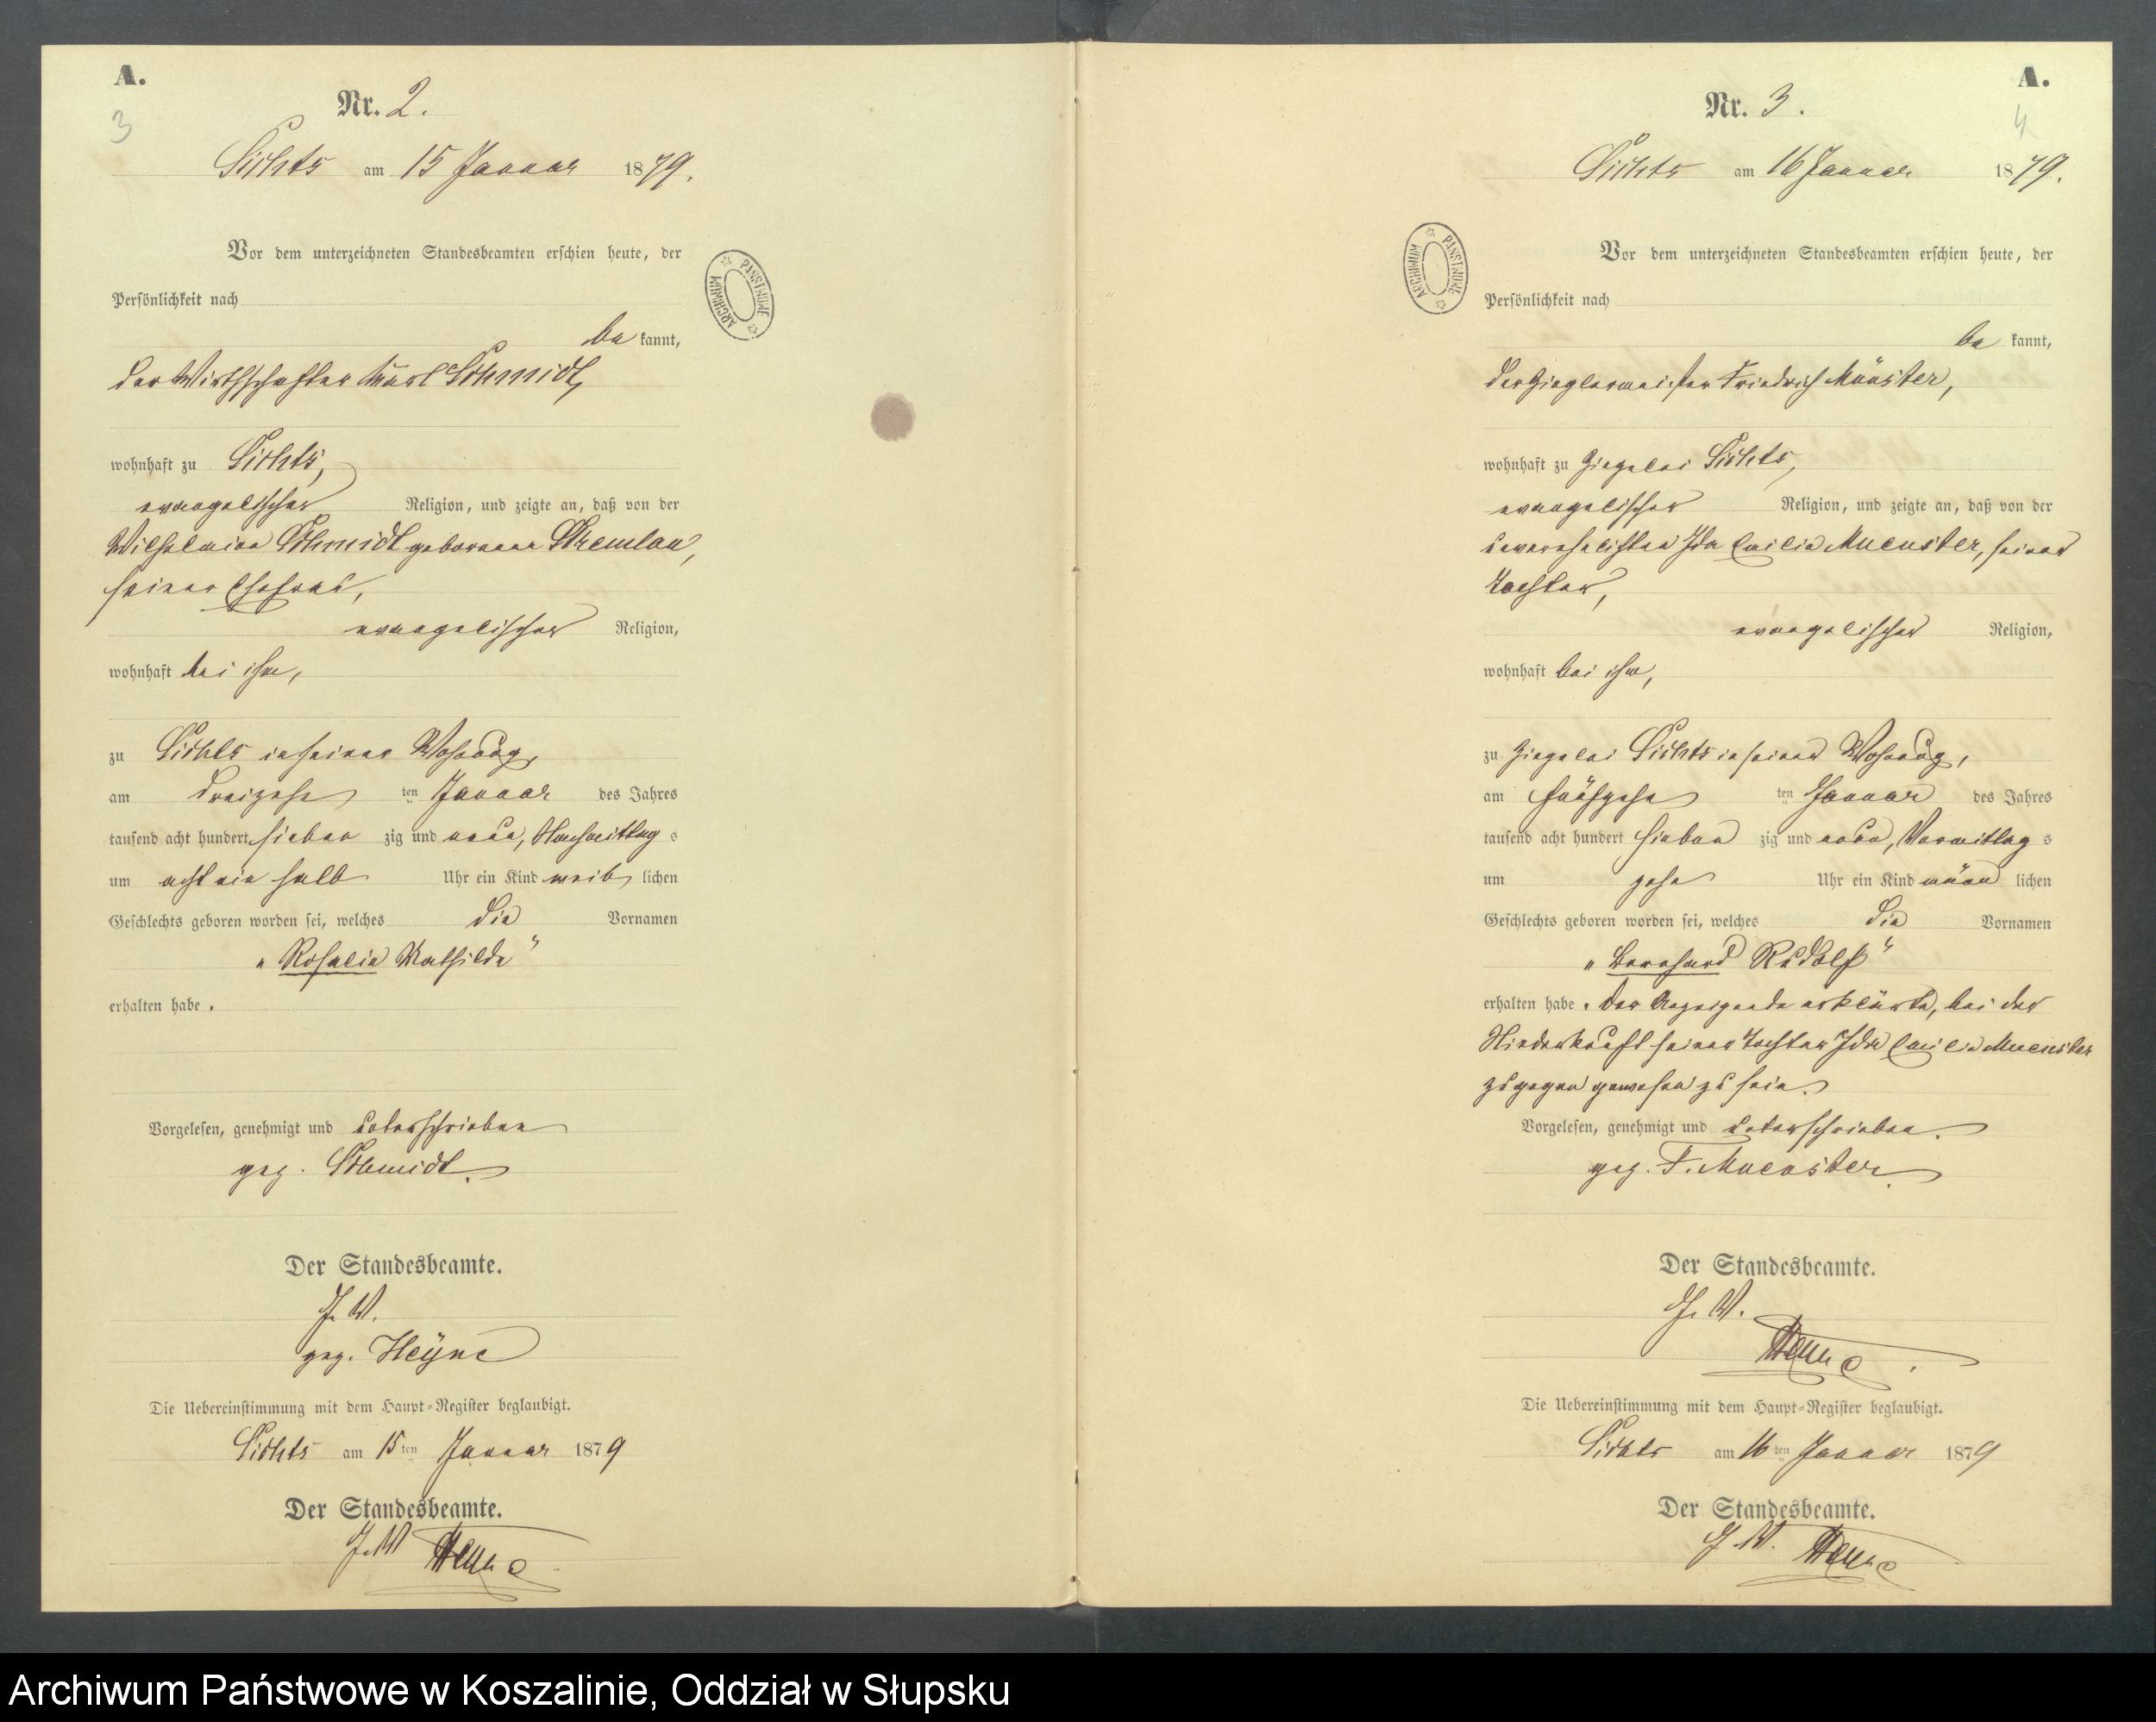 A.
3
Nr. 2.
Lichts am 15 Januar 1879.
Vor dem unterzeichneten Standesbeamten erschien heute, der
Persönlichkeit nach
be kannt,
der Wirthschafter Karl Schmidt,
wohnhaft zu
evangelischer Religion, und zeigte an, daß von der
Wilhelmine Schmidt geborenen
seiner Ehefrau,
evangelischer Religion,
wohnhaft bei ihm,
zu in seiner Wohnung,
am dreizehn ten Januar des Jahres
tausend acht hundert sieben zig und neun, Nachmittag s
um acht ein halb Uhr ein Kind weib lichen
Geschlechts geboren worden sei, welches die Vornamen
„Rosalie Mathilde“
erhalten habe.
Vorgelesen, genehmigt und unterschrieben
gez. Schmidt.
Der Standesbeamte.
J. V.
gez. Heyne
Die Uebereinstimmung mit dem Haupt-Register beglaubigt.
am 15 ten Januar 1879
Der Standesbeamte.
J. V. Heyne
ARCHIWUM PAŃSTWOWE
A.
4
Nr. 3.
am 16 Januar 1879.
Vor dem unterzeichneten Standesbeamten erschien heute, der
Persönlichkeit nach
be kannt,
der Zieglermeister Friedrich Münster,
wohnhaft zu Ziegelei
evangelischer Religion, und zeigte an, daß von der
unverehelichten Ida Emilie Muenster, seiner
Tochter,
evangelischer Religion,
wohnhaft bei ihm,
zu Ziegelei in seiner Wohnung,
am fünfzehn ten Januar des Jahres
tausend acht hundert sieben zig und neun, Vormittag s
um zehn Uhr ein Kind männ lichen
Geschlechts geboren worden sei, welches die Vornamen
„Bernhard Rudolf“
erhalten habe. Der Anzeigende erklärte, bei der
Niederkunft seiner Tochter Ida Emilie Muenster
zugegen gewesen zu sein.
Vorgelesen, genehmigt und unterschrieben.
gez. F. Muenster
Der Standesbeamte.
J. V.
Heyne
Die Uebereinstimmung mit dem Haupt-Register beglaubigt.
am 16 ten Januar 1879
Der Standesbeamte.
J. V. Heyne
ARCHIWUM PAŃSTWOWE
Archiwum Państwowe w Koszalinie, Oddział w Słupsku